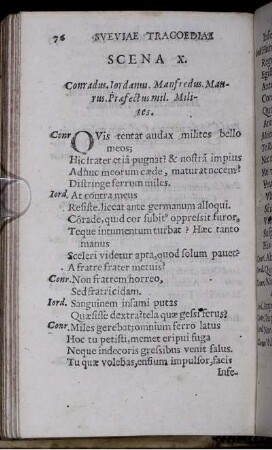 76 SVEVIAE TRAGOEDIAE
SCENA X.
Conradus. Iordanu. Manfredus. Mau-
rus. Præfectus mil. Mili-
tes.
Conr. QVis tentat audax milites bello
meos;
Hic frater etiã pugnat? & nostrã impius
Adhuc meorum cæde, maturat necem?
Distringe ferrum miles.
Iord. At contra meus
Resiste. liceat ante germanum alloqui.
Cõrade, quid cor subitº oppressit furor,
Teque intumentum turbat? Hæc tanto
manus
Sceleri videtur apta, quod solum pauet?
A fratre frater metuis?
Conr. Non fratrem, horreo,
Sed fratricidam.
Iord. Sanguinem insami putas
Quæsisse dextra? tela quæ gessi ferus?
Conr. Miles gerebat; omnium ferro latus
Hoc tu petisti, me met eripui fuga
Neque indecoris gressibus venit salus.
Tu quæ volebas, ensium impulsor, facis
Infe-